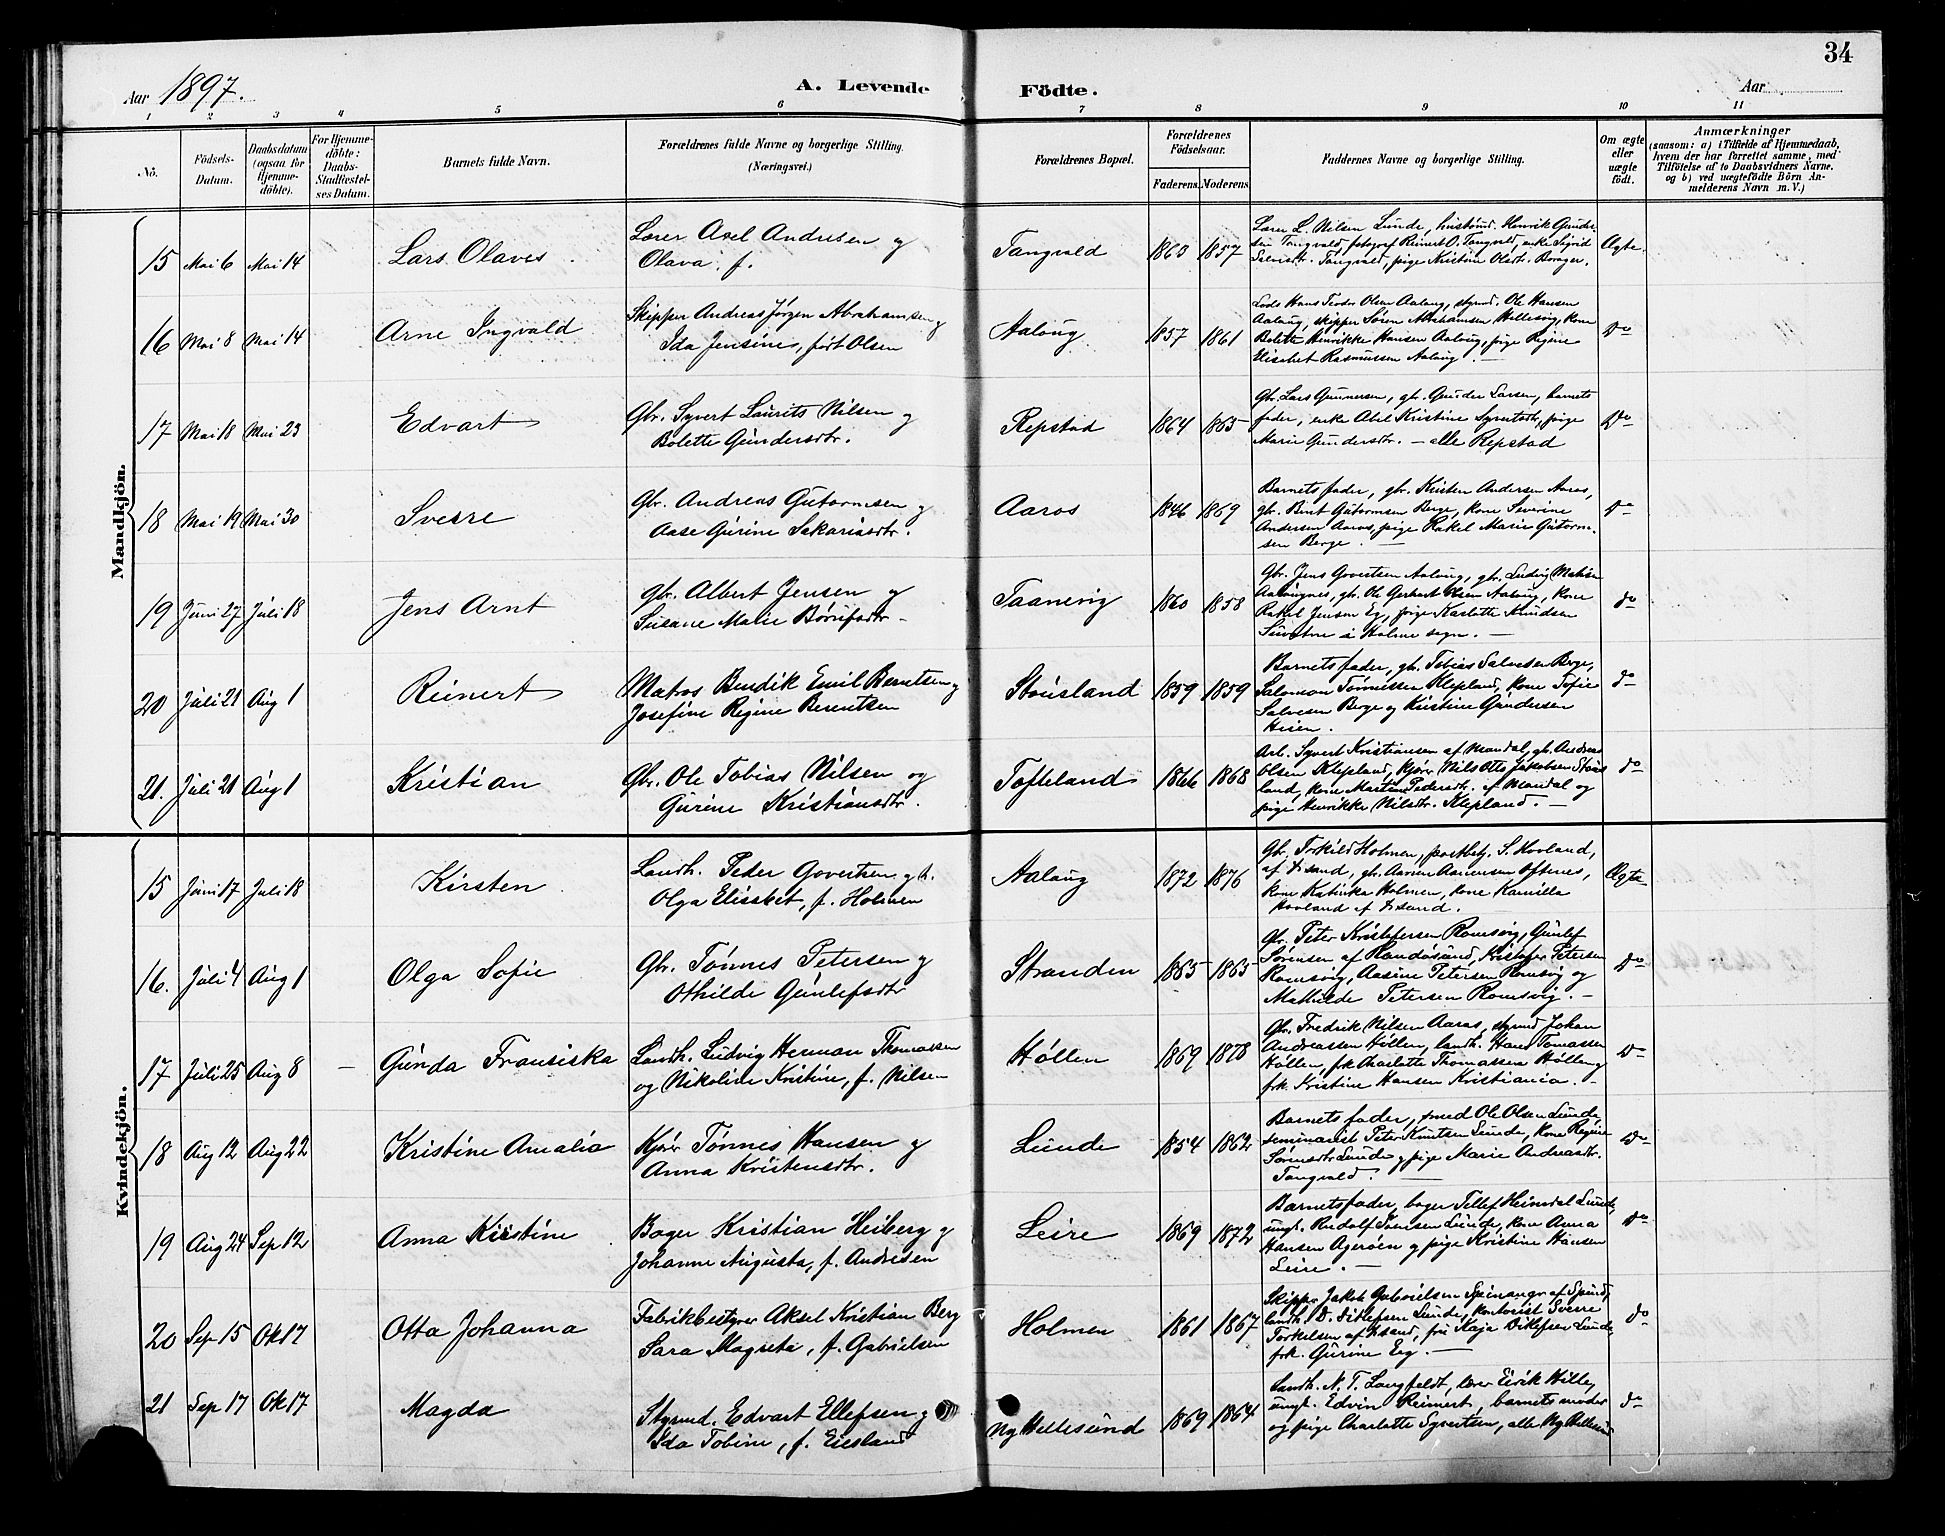 34
Aar 1897.
A. Levende Födte.
Aar
1 2 3 4 5 6 7 8 9 10 11
No.
Födsels-Datum.
Daabsdatum (ogsaa for Hjemme-döbte).
For Hjemme-döbte: Daabs-Stadfæstel-ses Datum.
Barnets fulde Navn.
Forældrenes fulde Navne og borgerlige Stilling. (Næringsvei.)
Forældrenes Bopæl.
Forældrenes Födselsaar.
Faderens. Moderens.
Faddernes Navne og borgerlige Stilling.
Om ægte eller uægte födt.
Anmærkninger
(saasom: a) i Tilfælde af Hjemmedaab,
hvem der har forrettet samme, med
Tilföielse af to Daabsvidners Navne.
og b) ved uægtefödte Börn An-
melderens Navn m. V.)
Mandkjön.
15 Mai 6 Mai 14 Lars Olaves
Lærer Axel Andresen og
Olava, f.
Tangvald 1863 1857
Lærer L. Nilsen Lunde, husmd. Henrik Gunder-
sen Tangvald, fotograf Reinert O. Tangvald, enke Sigrid
Tangvald, pige Kristine Olsdt.
Ægte.
16 Mai 8 Mai 14 Arne Ingvald
Skipper Andreas Jørgen Abrahamsen og
Ida Jensine, født Olsen
Aalaug 1857 1861
Lods Hans Teodor Olsen Aalaug, styrmd. Ole Hansen
Aalaug, skipper Søren Abrahamsen Hellesvig, kone
Bolette Henrikke Hansen Aalaug, pige Regine
Elisabet Rasmussen Aalaug. —
Do
17 Mai 18 Mai 23 Edvart
Gbr. Syvert Laurits Nilsen og
Bolette Gundersdtr.
Repstad 1864 1865
Gbr. Lars Gunnersen, gbr. Gunder Larsen, barnets
fader, enke Abel Kristine Syvertsdtr, pige
Marie Gundersdtr. — alle Repstad
Do
18 Mai 19 Mai 30 Sverre
Gbr. Andreas Gutormsen og
Aase Gurine Sakariasdtr.
Aaros 1846 1869
Barnets fader, gbr. Kristen Andersen Aaros,
gbr. Berit Gutormsen Berge, kone Severine
Andersen Aaros, pige Rakel Marie Gutorm-
sen Berge. —
Do
19 Juni 27 Juli 18 Jens Arnt
Gbr. Albert Jensen og
Susane Marie Børufsdtr
Taanevig 1860 1858
Gbr. Jens Govertsen Aalaug, gbr. Ludvig Mathisen
Aalaugnes, gbr. Ole Gerhart Olsen Aalaug, kone
Rakel Jensen Eg, pige Karlotte Knudsen
i Holme sogn. —
do
20 Juli 21 Aug 1 Reinert
Matros Bendik Emil Berntsen og
Josefine Regine Berentsen
Stousland 1859 1859
Barnets fader, gbr. Tobias Salvesen Berge,
Salomon Tønnessen Klepland, kone Tofie
Salvesen Berge og Kristine Gundersen
do
21. Juli 21 Aug 1 Kristian
Gbr. Ole Tobias Nilsen og
Gurine Kristiansdtr.
Tofteland 1866 1868
Arb. Syvert Kristiansen af Mandal, gbr. Andreas
Olsen Klepland, kjører Nils Otto Jakobsen Stous-
land, kone Martine Pedersdtr. af Mandal og
pige Henrikke Nilsdtr. Klepland. —
do
Kvindekjön.
15 Juni 17 Juli 18 Kirsten
Landh. Peder Govertsen og h.
Olga Elisabet, f. Holmen
Aalaug 1872 1876
Gbr. Torkild Holmen, postbetj. S. Hovland,
af Krsand, gbr. Aanen Aanensen Oftenes,
kone Katinka Holmen, kone Kamilla
Hovland af Krsand.
Ægte
16. Juli 4 Aug 1 Olga Sofie
Gbr. Tønnes Petersen og
Othilde Gunlefsdtr
Stranden 1855 1865
Gbr. Peter Kristefersen Romsvig, Gunlef
Sørensen af Randøsund, Kristofer Petersen
Romsvig, Aasine Petersen Romsvig og
Mathilde Petersen Romsvig. —
Do
17 Juli 25 Aug 8 — Gunda Fransiska
Landh. Ludvig Herman Thomassen
og Nikoline Kristine, f. Nilsen
Høllen 1869 1878
Gbr. Fredrik Nilsen Aaros, styrmd Johan
Andreassen Høllen, landh. Hans Tomassen
Høllen, frk Charlotte Thomassen Høllen og
frk. Kristine Hansen Kristiania. —
Do
18 Aug 12 Aug 22 Kristine Amalia
Kjører Tønnes Hansen og
Anna Kristensdtr.
Lunde 1854 1862
Barnets fader, smed Ole Olsen Lunde,
seminarist Peter Knutsen Lunde, kone Regine
Sørensdtr Lunde og pige Marie Andreasdtr.
Tangvald. —
Do
19 Aug 24 Sep 12 Anna Kirstine
Bager Kristian Heiberg og
Johanne Augusta, f. Andresen
Leire 1869 1872
Barnets fader, bager Tellef Heimdal Lunde,
ungk. Rudolf Tomsen Lunde, kone Anna
Hansen Agerøen og pige Kristine Hansen
Leire. —
Do
20 Sep 15 Ok 17 Otta Johanna
Fabrikbestyrer Aksel Kristian Berg
Sara Magreta, f. Gabrielsen
Holmen 1861 1867
Skipper Jakob Gabrielsen Spinanger af Spind,
landh. D. Ditlefsen Lunde, kontorist Sverre
Torkelsen af Krsand, fru Kaja Ditlefsen Lunde,
frk. Gurine Eeg. —
do
21 Sep 17 Ok 17 Magda
Styrmd. Edvart Ellefsen og
Ida Tobine, f. Eiesland
Ny Hellesund 1869 1864
Landh. N. T. Langfeldt, lærer Eirik Hille,
ungk. Edvin Reinert, barnets moder
og pige Charlotte Syvertsen, alle Ny Hellesund
do